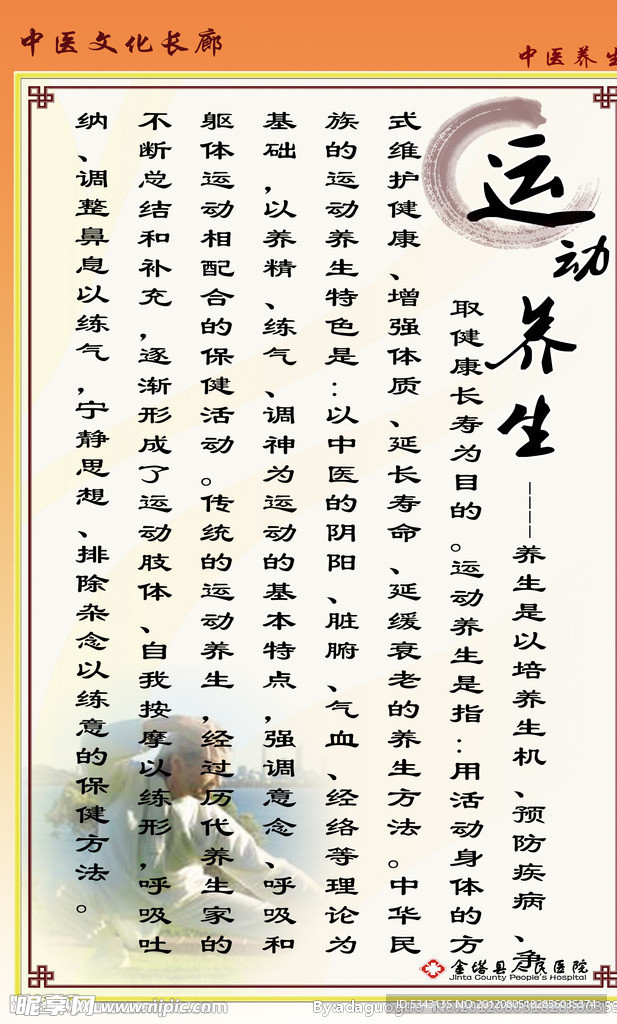 中医文化长廊
中医养生
运动养生
———养生是以培养生机、预防疾病、争
取健康长寿为目的。运动养生是指：用活动身体的方
式维护健康、增强体质、延长寿命、延缓衰老的养生方法。中华民
族的运动养生特色是：以中医的阴阳、脏腑、气血、经络等理论为
基础，以养精、练气、调神为运动的基本特点，强调意念、呼吸和
躯体运动相配合的保健活动。传统的运动养生，经过历代养生家的
不断总结和补充，逐渐形成了运动肢体、自我按摩以练形，呼吸吐
纳、调整鼻息以练气，宁静思想、排除杂念以练意的保健方法。
金塔县人民医院
Jinta County People's Hospital
昵享网 www.nipic.com